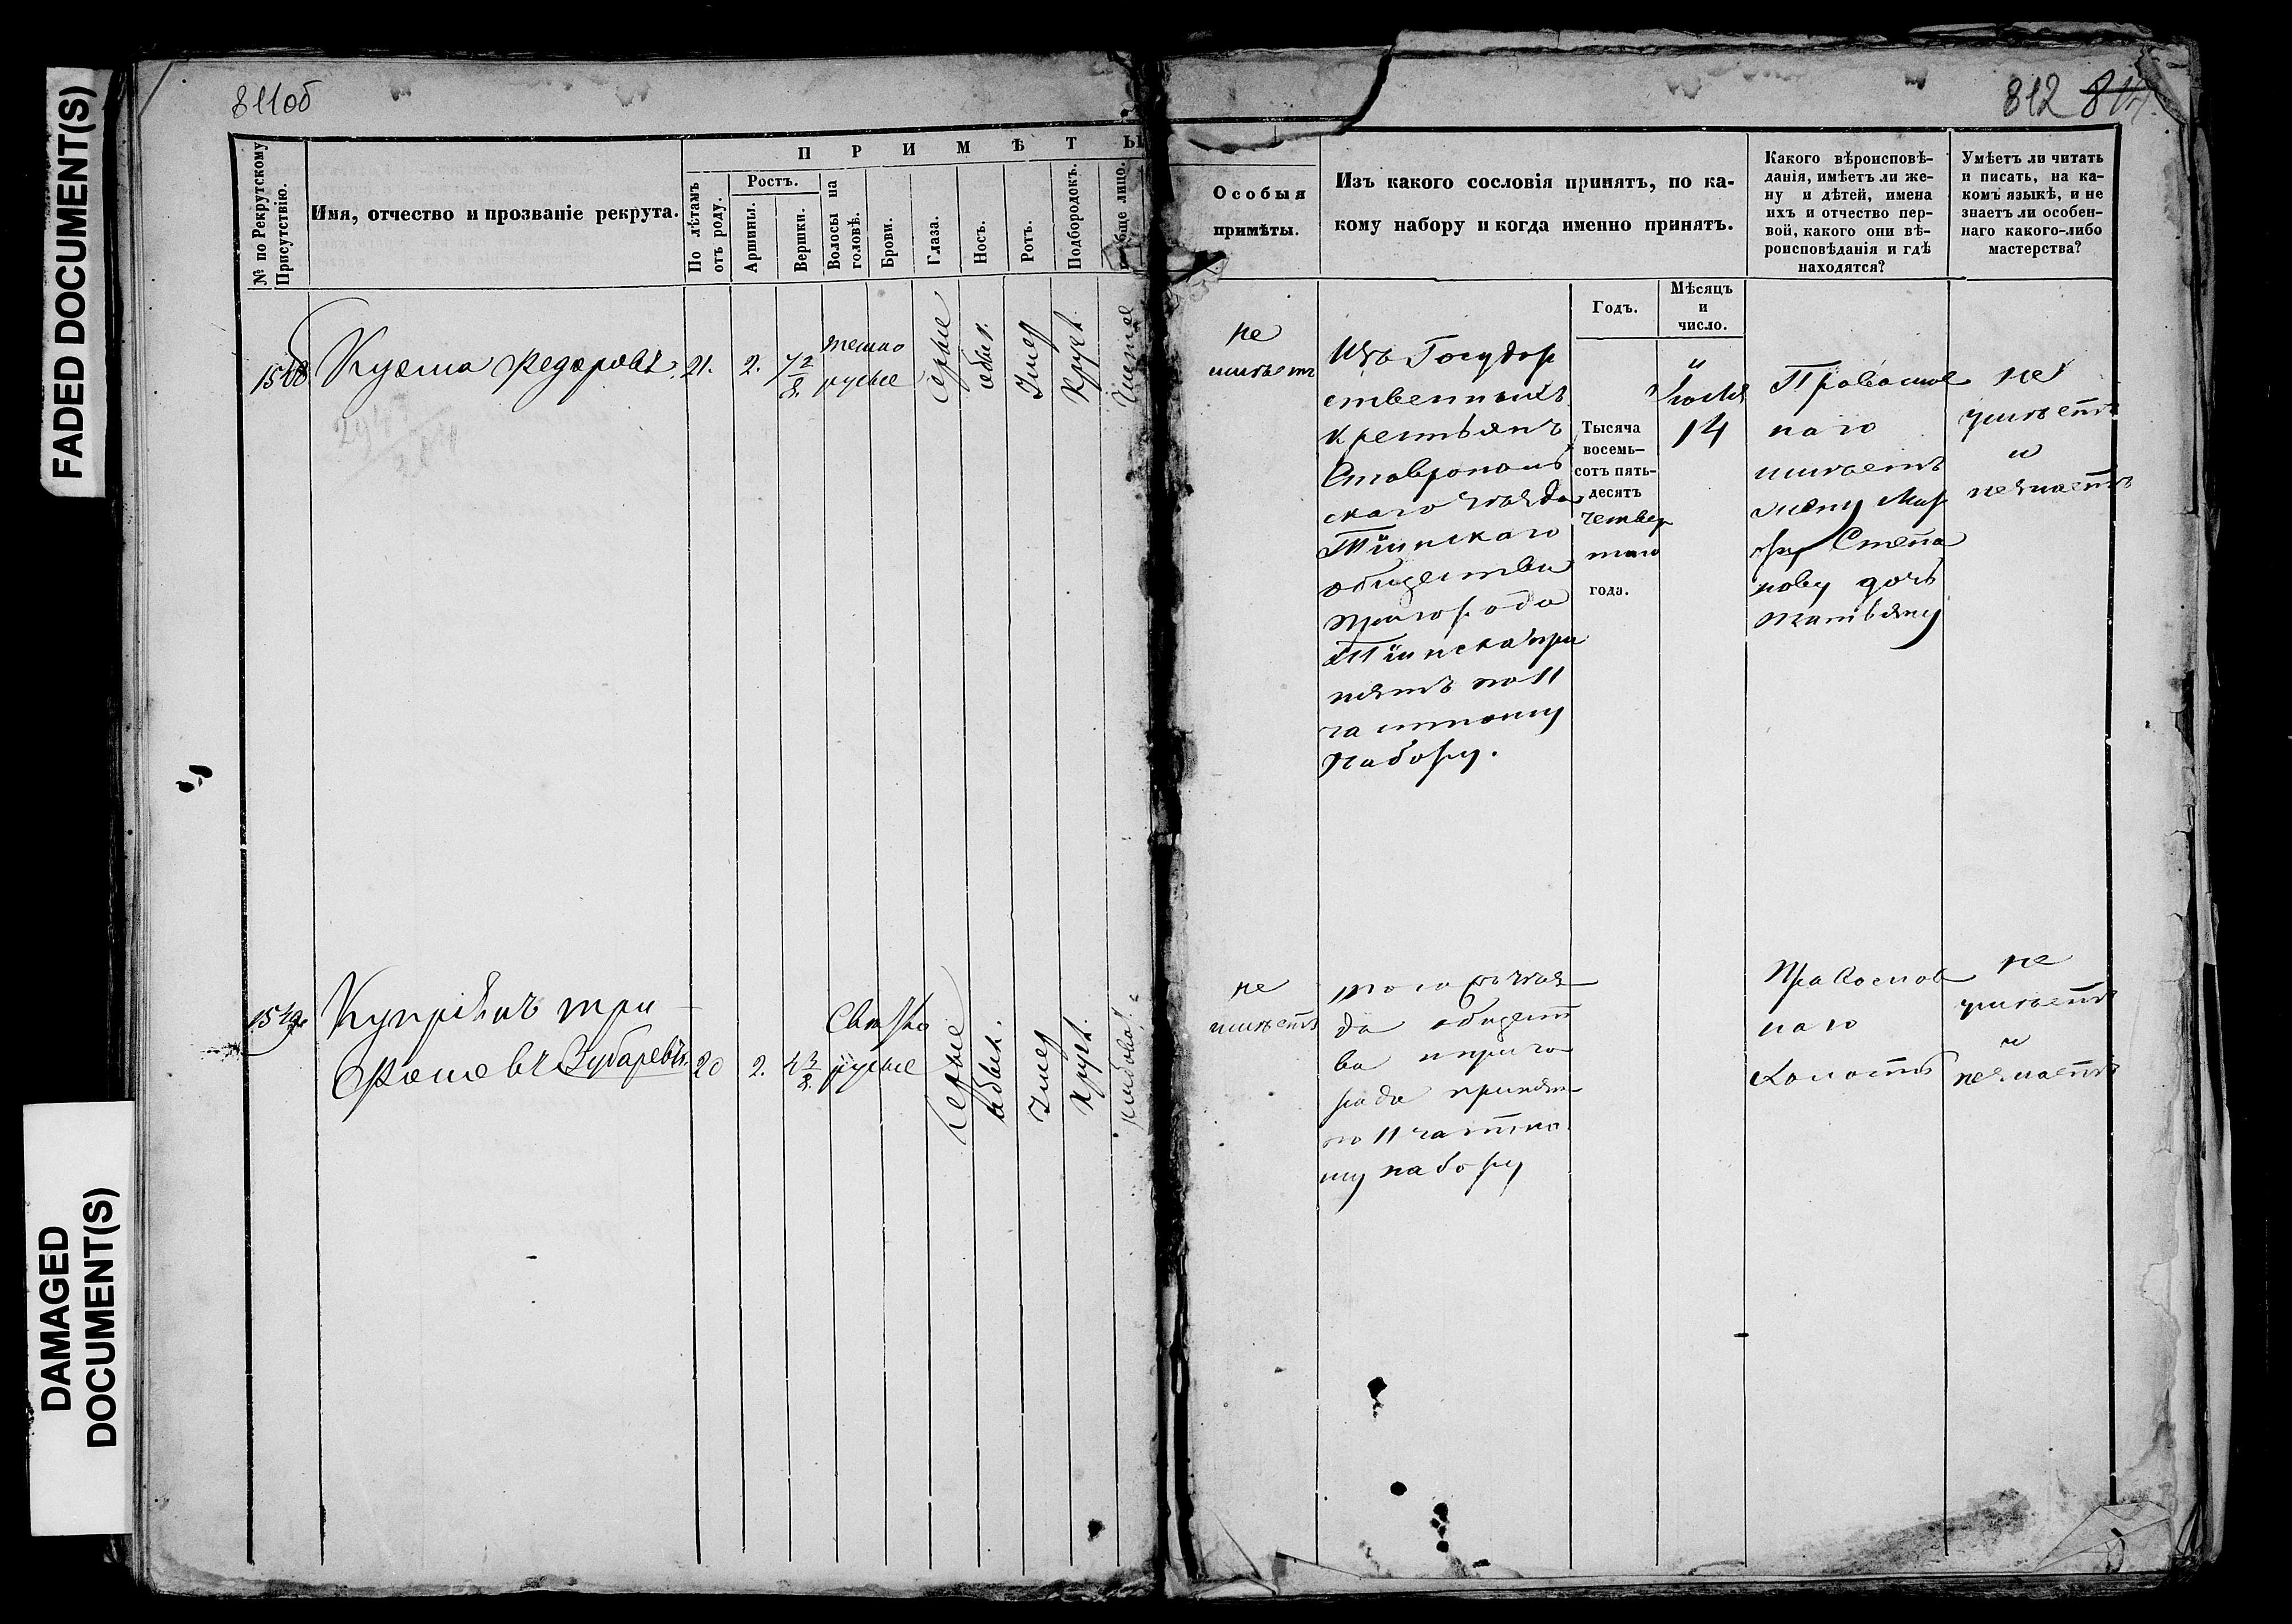 FADED DOCUMENT(S)
DAMAGED
DOCUMENT(S)
811об
812
№ по Рекрутскому
Присутствію.
Имя, отчество и прозваніе рекрута.
П Р И М Ѣ Т Ы
По лѣтамъ
отъ роду.
Ростъ.
Аршины.
Вершки.
Волосы на
головѣ.
Брови.
Глаза.
Носъ.
Ротъ.
Подбородокъ.
лицо.
Особыя
примѣты.
Изъ какого сословія принятъ, по ка-
кому набору и когда именно принятъ.
Годъ.
Мѣсяцъ
и
число.
Какого вѣроисповѣ-
данія, имѣетъ ли же-
ну и дѣтей, имена
ихъ и отчество пер-
вой, какого они вѣ-
роисповѣданія и гдѣ
находятся?
Умѣетъ ли читать
и писать, на ка-
комъ языкѣ, и не
знаетъ ли особен-
наго какого-либо
мастерства?
Кузма Федоровъ
21.
2.
7 2/8.
темно
русые
серые
обык.
Умер
Кругл.
Чистое
не
имѣетъ
Изъ Государ
ственныхъ
крестьянъ
Ставрополь
скаго уѣзда
Тіинскаго
общества
пригорода
Тіинска при
нятъ по 11
частному
набору.
Тысяча
восемь-
сотъ пять-
десятъ
четвер
таго
года.
Іюля
14
Православ
наго
имѣетъ
жену Мар
фу Степа
нову дочь
татьяну
не
умѣетъ
и
незнаетъ
1549
Купріянъ три
фоновъ Зубаревъ
20
2.
4 3/8.
Светло
русые
серые
обык.
Умер
Кругл.
рябова
не
имѣетъ
того жъ уѣз
да общест
ва и приго
рода принятъ
по 11 частно
му набору
Православ
наго
Холостъ
не
умѣетъ
и
незнаетъ